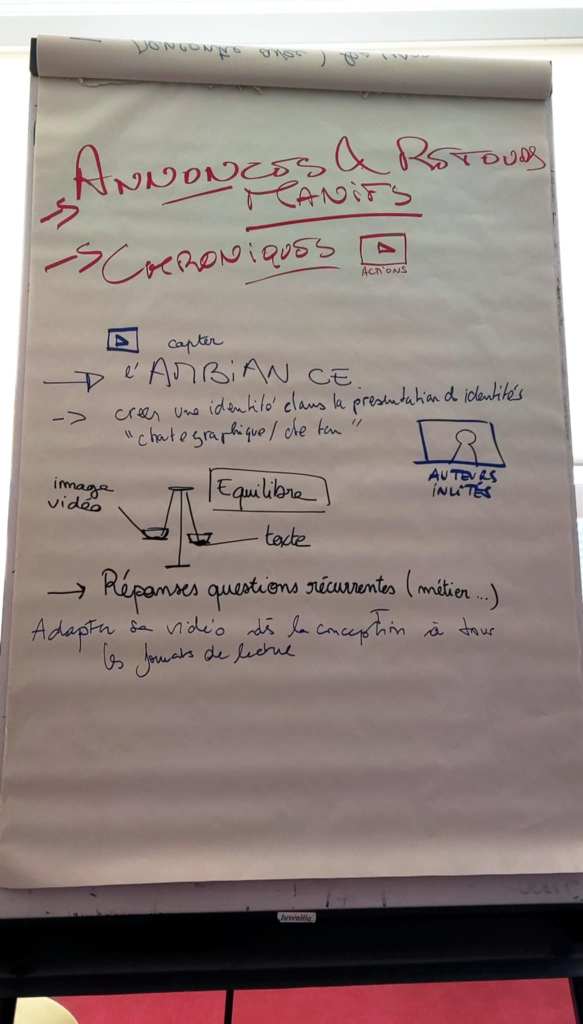 ANNONCES & RETOURS
→ MANIFS
→ CHRONIQUES
ACTIONS
capter
→ l'AMBIANCE
-> créer une identité dans la présentation d identités
"charte graphique / de ton"
AUTEURS
INVITÉS
image
vidéo
Equilibre
texte
→ Réponses questions récurrentes (métier...)
Adapter sa vidéo dès la conception à tous
les formats de lecture